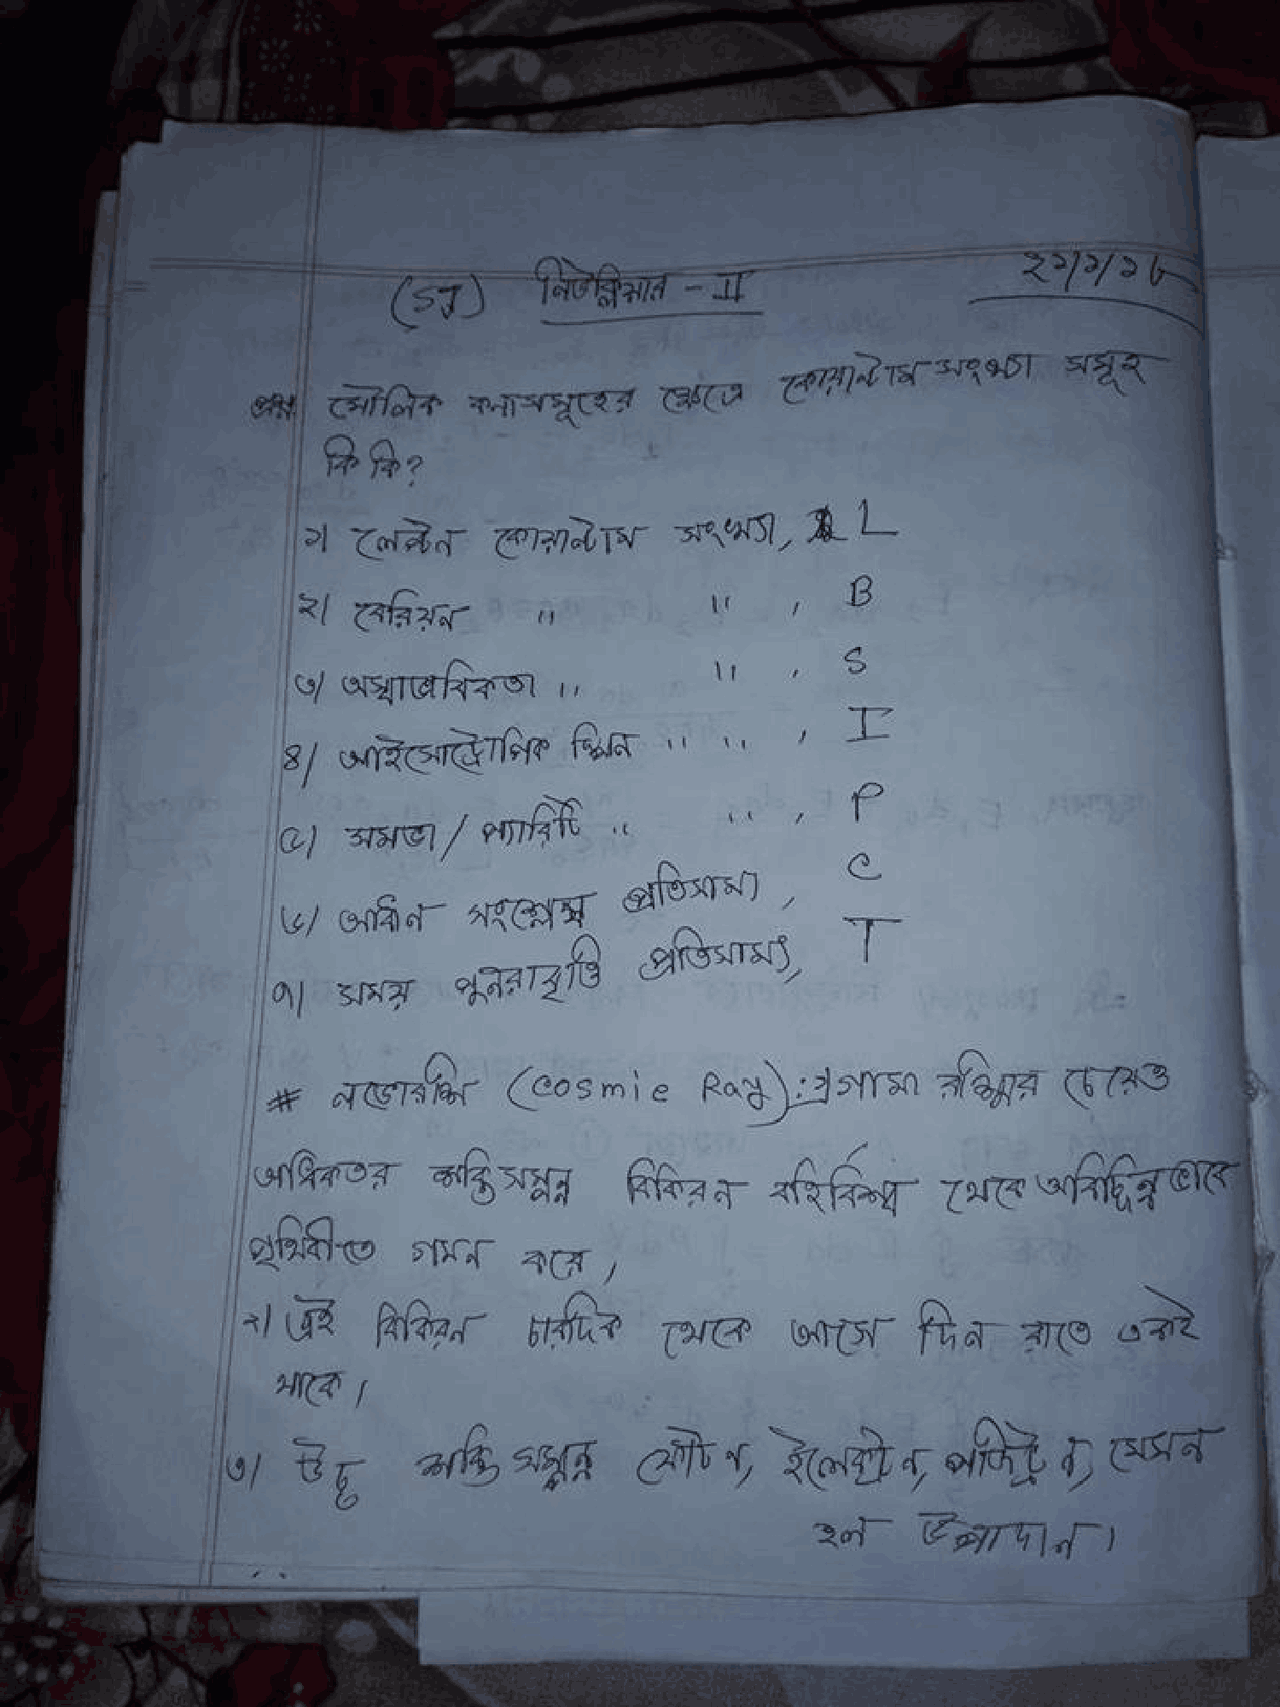 (SJ) নিউক্লিয়ার - II
২১/১/১৮
প্রশ্ন মৌলিক কনাসমূহের ক্ষেত্রে কোয়ান্টাম সংখ্যা সমূহ
কি কি?
১। লেপ্টন কোয়ান্টাম সংখ্যা, L
২। বেরিয়ন " " , B
৩। অস্বাভাবিকতা " " , S
৪। আইসোটোপিক স্পিন " " , I
৫। সমতা / প্যারিটি " " , P
৬। আধান সংশ্লেষ প্রতিসাম্য, C
৭। সময় পুনরাবৃত্তি প্রতিসাম্য, T
# নভোরশ্মি (Cosmic Ray): গামা রশ্মির চেয়েও
অধিকতর শক্তিসম্পন্ন বিকিরন বহির্বিশ্ব থেকে অবিচ্ছিন্নভাবে
পৃথিবীতে গমন করে,
২। এই বিকিরন চারদিক থেকে আসে দিন রাতে একই
থাকে।
৩। উচ্চ শক্তিসম্পন্ন ইলেকট্রন, পজিট্রন, মেসন
হল উপাদান।